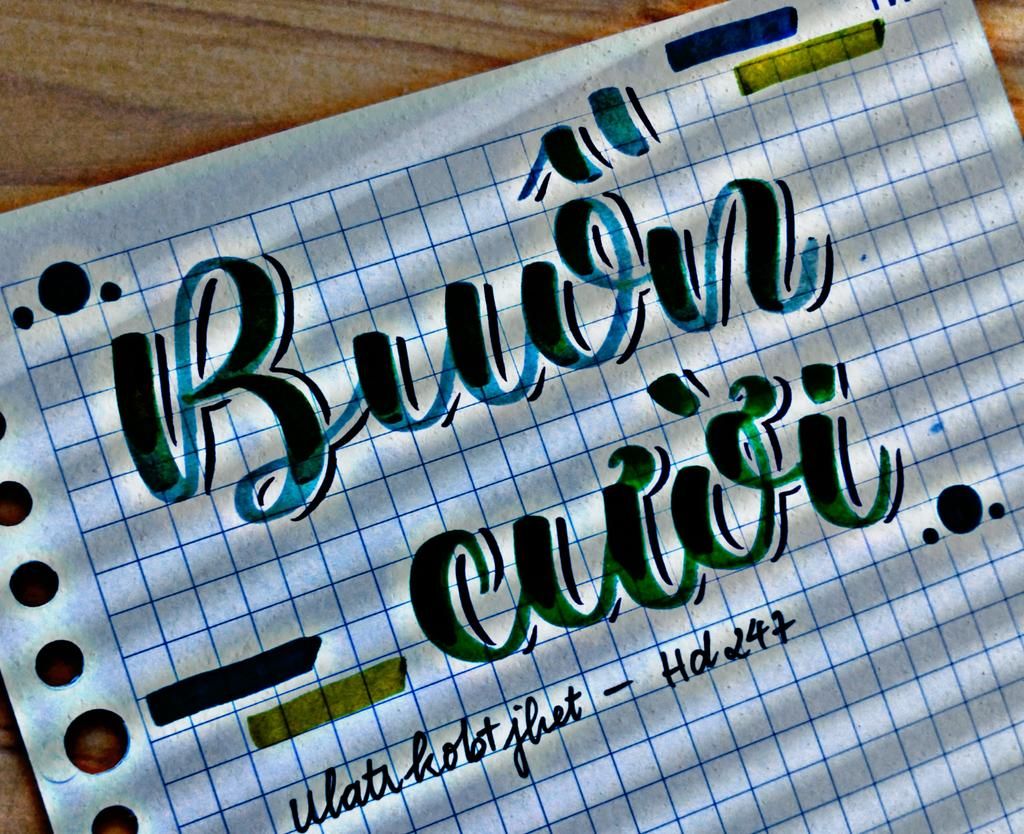 Buồn
cười
– Hd 247